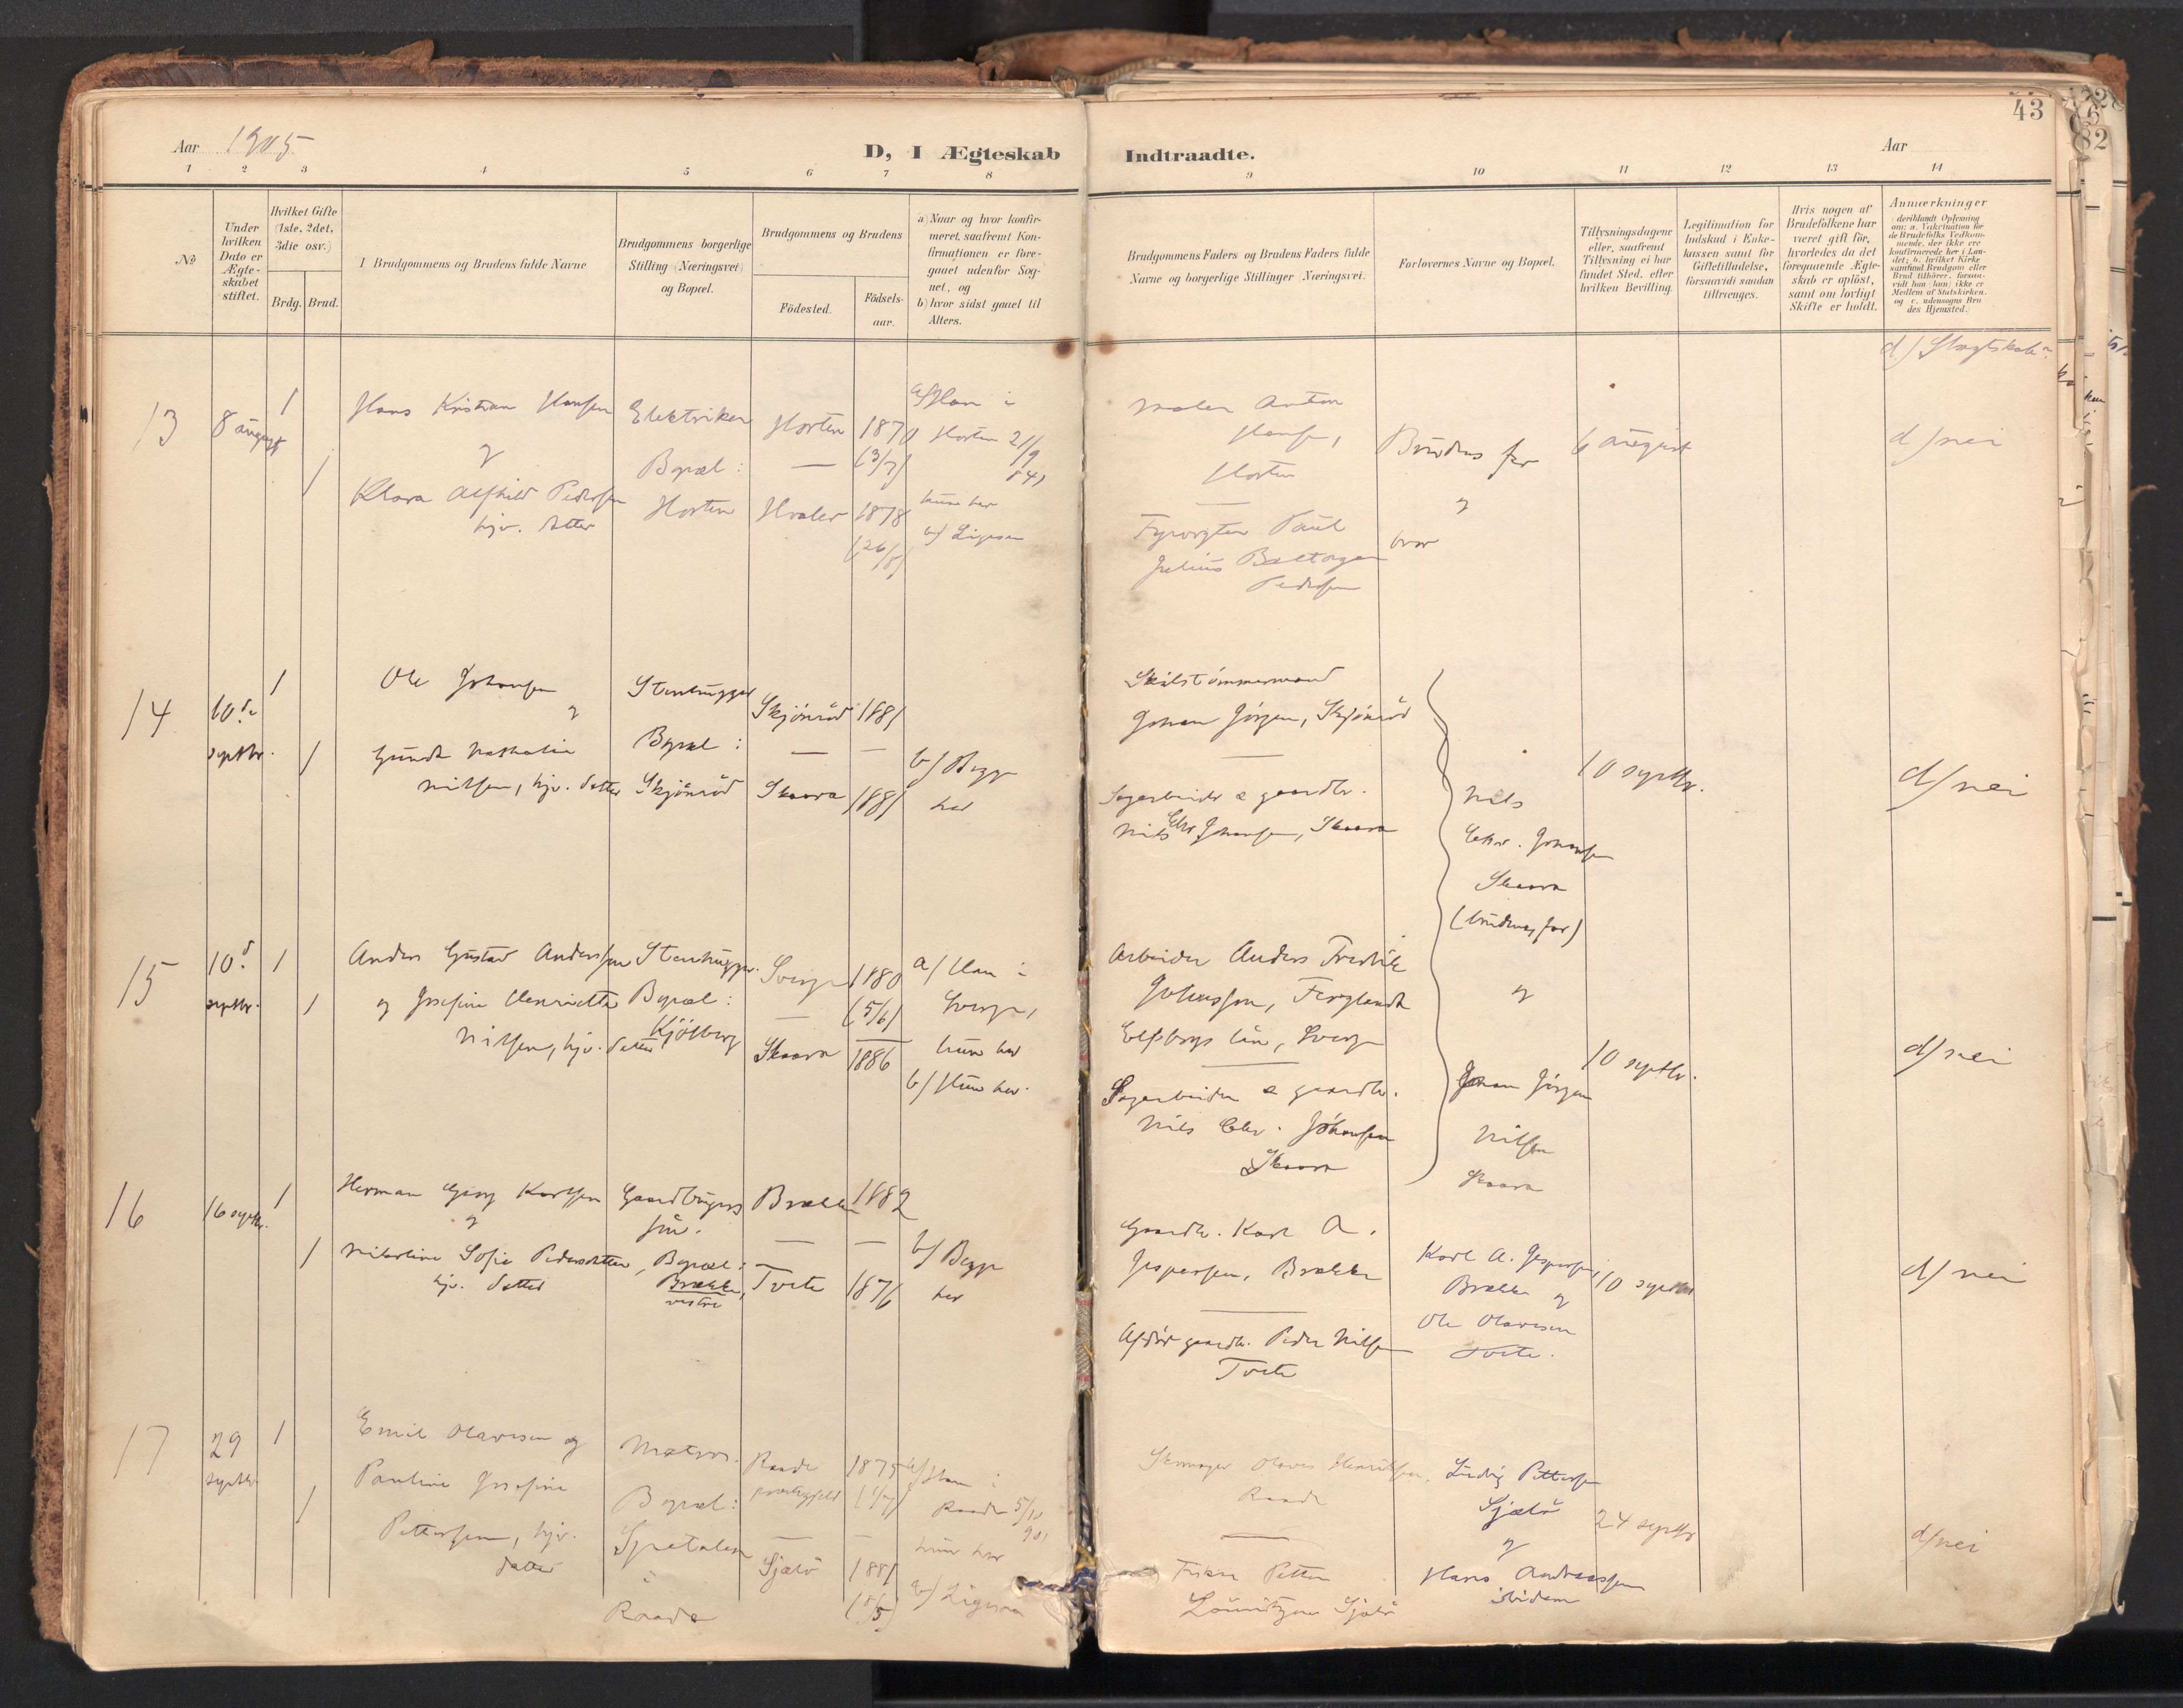 43
Aar 1905
D, I Ægteskab
Indtraadte.
Aar
1 2 3 4 5 6 7 8
9 10 11 12 13 14
No
Under hvilken Dato er Ægteskabet stiftet.
Hvilket Gifte (1ste, 2det, 3die osv.)
Brdg. Brud.
Brudgommens og Brudens fulde Navne
Brudgommens borgerlige Stilling (Næringsvei) og Bopæl.
Brudgommens og Brudens
Fødested.
Fødselsaar.
a) Naar og hvor konfirmeret, saafremt Konfirmationen er foregaaet udenfor Sognet, og
b) hvor sidst gaaet til Alters.
Brudgommens Faders og Brudens Faders fulde Navne og borgerlige Stillinger (Næringsvei).
Forlovernes Navne og Bopæl.
Tillysningsdagene eller, saafremt Tillysning ei har fundet Sted, efter hvilken Bevilling.
Legitimation for Indskud i Enkekassen samt for Giftetilladelse, forsaavidt saadan tiltrænges.
Hvis nogen af Brudefolkene har været gift før, hvorledes da det foregaaende Ægteskab er opløst, samt om lovligt Skifte er holdt.
Anmærkninger
d) Slægtskab
13
8 august
1
1
Hans Kristian Hansen
og
Klara Alfhild Pedersen
hjv. datter
Elektriker
Bopæl:
Horten
Horten
—
Hvaler
1870
(3/7)
1878
(26/8)
a/ Han i
Horten 21/9
hun her
b/ Ligesaa
Maler Anton
Hansen,
Horten
—
Fyrvogter Paul
Julius
Pedersen
Brudens far
og
bror
6 august
d/ nei
14
10de
septbr.
1
1
Ole Johansen
og
Gunda Nathalia
Nilsen, hjv. datter
Stenhugger
Bopæl:
Skjønrød
Skjønrød
—
Skaara
1881
—
1881
b/ Begge
her
Skibstømmermand
Johan Jørgen, Skjønrød
—
Sagarbeider & gaardbr.
Nils Chr Johansen, Skaara
Nils
Chr. Johansen
Skaara
(brudenes far)
10 septbr.
d/ nei
15
10d
septbr.
1
1
Anders Gustav Andersson
og Josefine Henriette
Nilsen, hjv. datter
Stenhugger.
Bopæl:
Kjølberg
Sverge
—
Skaara
1880
(5/6)
1886
a/ Han i
Sverge,
hun her
b/ Hun her.
Arbeider Anders Fredrik
Johansson,
Elfsborgs län, Sverge
—
Sagarbeider & gaardbr.
Nils Chr. Johansen
Skaara
og
Johan Jørgen
Nilsen
Skaara
10 septbr.
d/ nei
16
16 septbr.
1
1
Herman Georg Karlsen
og
Nikoline Sofie Pedersdatter,
hjv. datter
Gaardbrugers
søn.
Bopæl:
Brække,
vestre
Brække
—
Tvete
1882
—
1876
b/ Begge
her
Gaardbr. Karl A.
Jespersen, Brække
—
Afdød gaardbr. Peder Nilsen
Tvete
Karl A. Jespersen,
Brække og
Ole Olavesen
Tvete.
10 septbr
d/ nei
17
29
septbr.
1
1
Emil Olavesen og
Pauline Josefine
Pettersen, hjv.
datter
Matros.
Bopæl:
Spetalen
i
Raade
Raade
præstegjeld
—
Sjælø
1875
—
1881
a/ Han i
Raade 5/10
90,
hun her
b/ Ligesaa
Skomager Olaves Henriksen,
Raade
—
Fisker Petter
Lauritzen Sjælø
Ludvig Pettersen
Sjælø
og
Hans Andreassen
ibidem
24 septbr
d/ nei